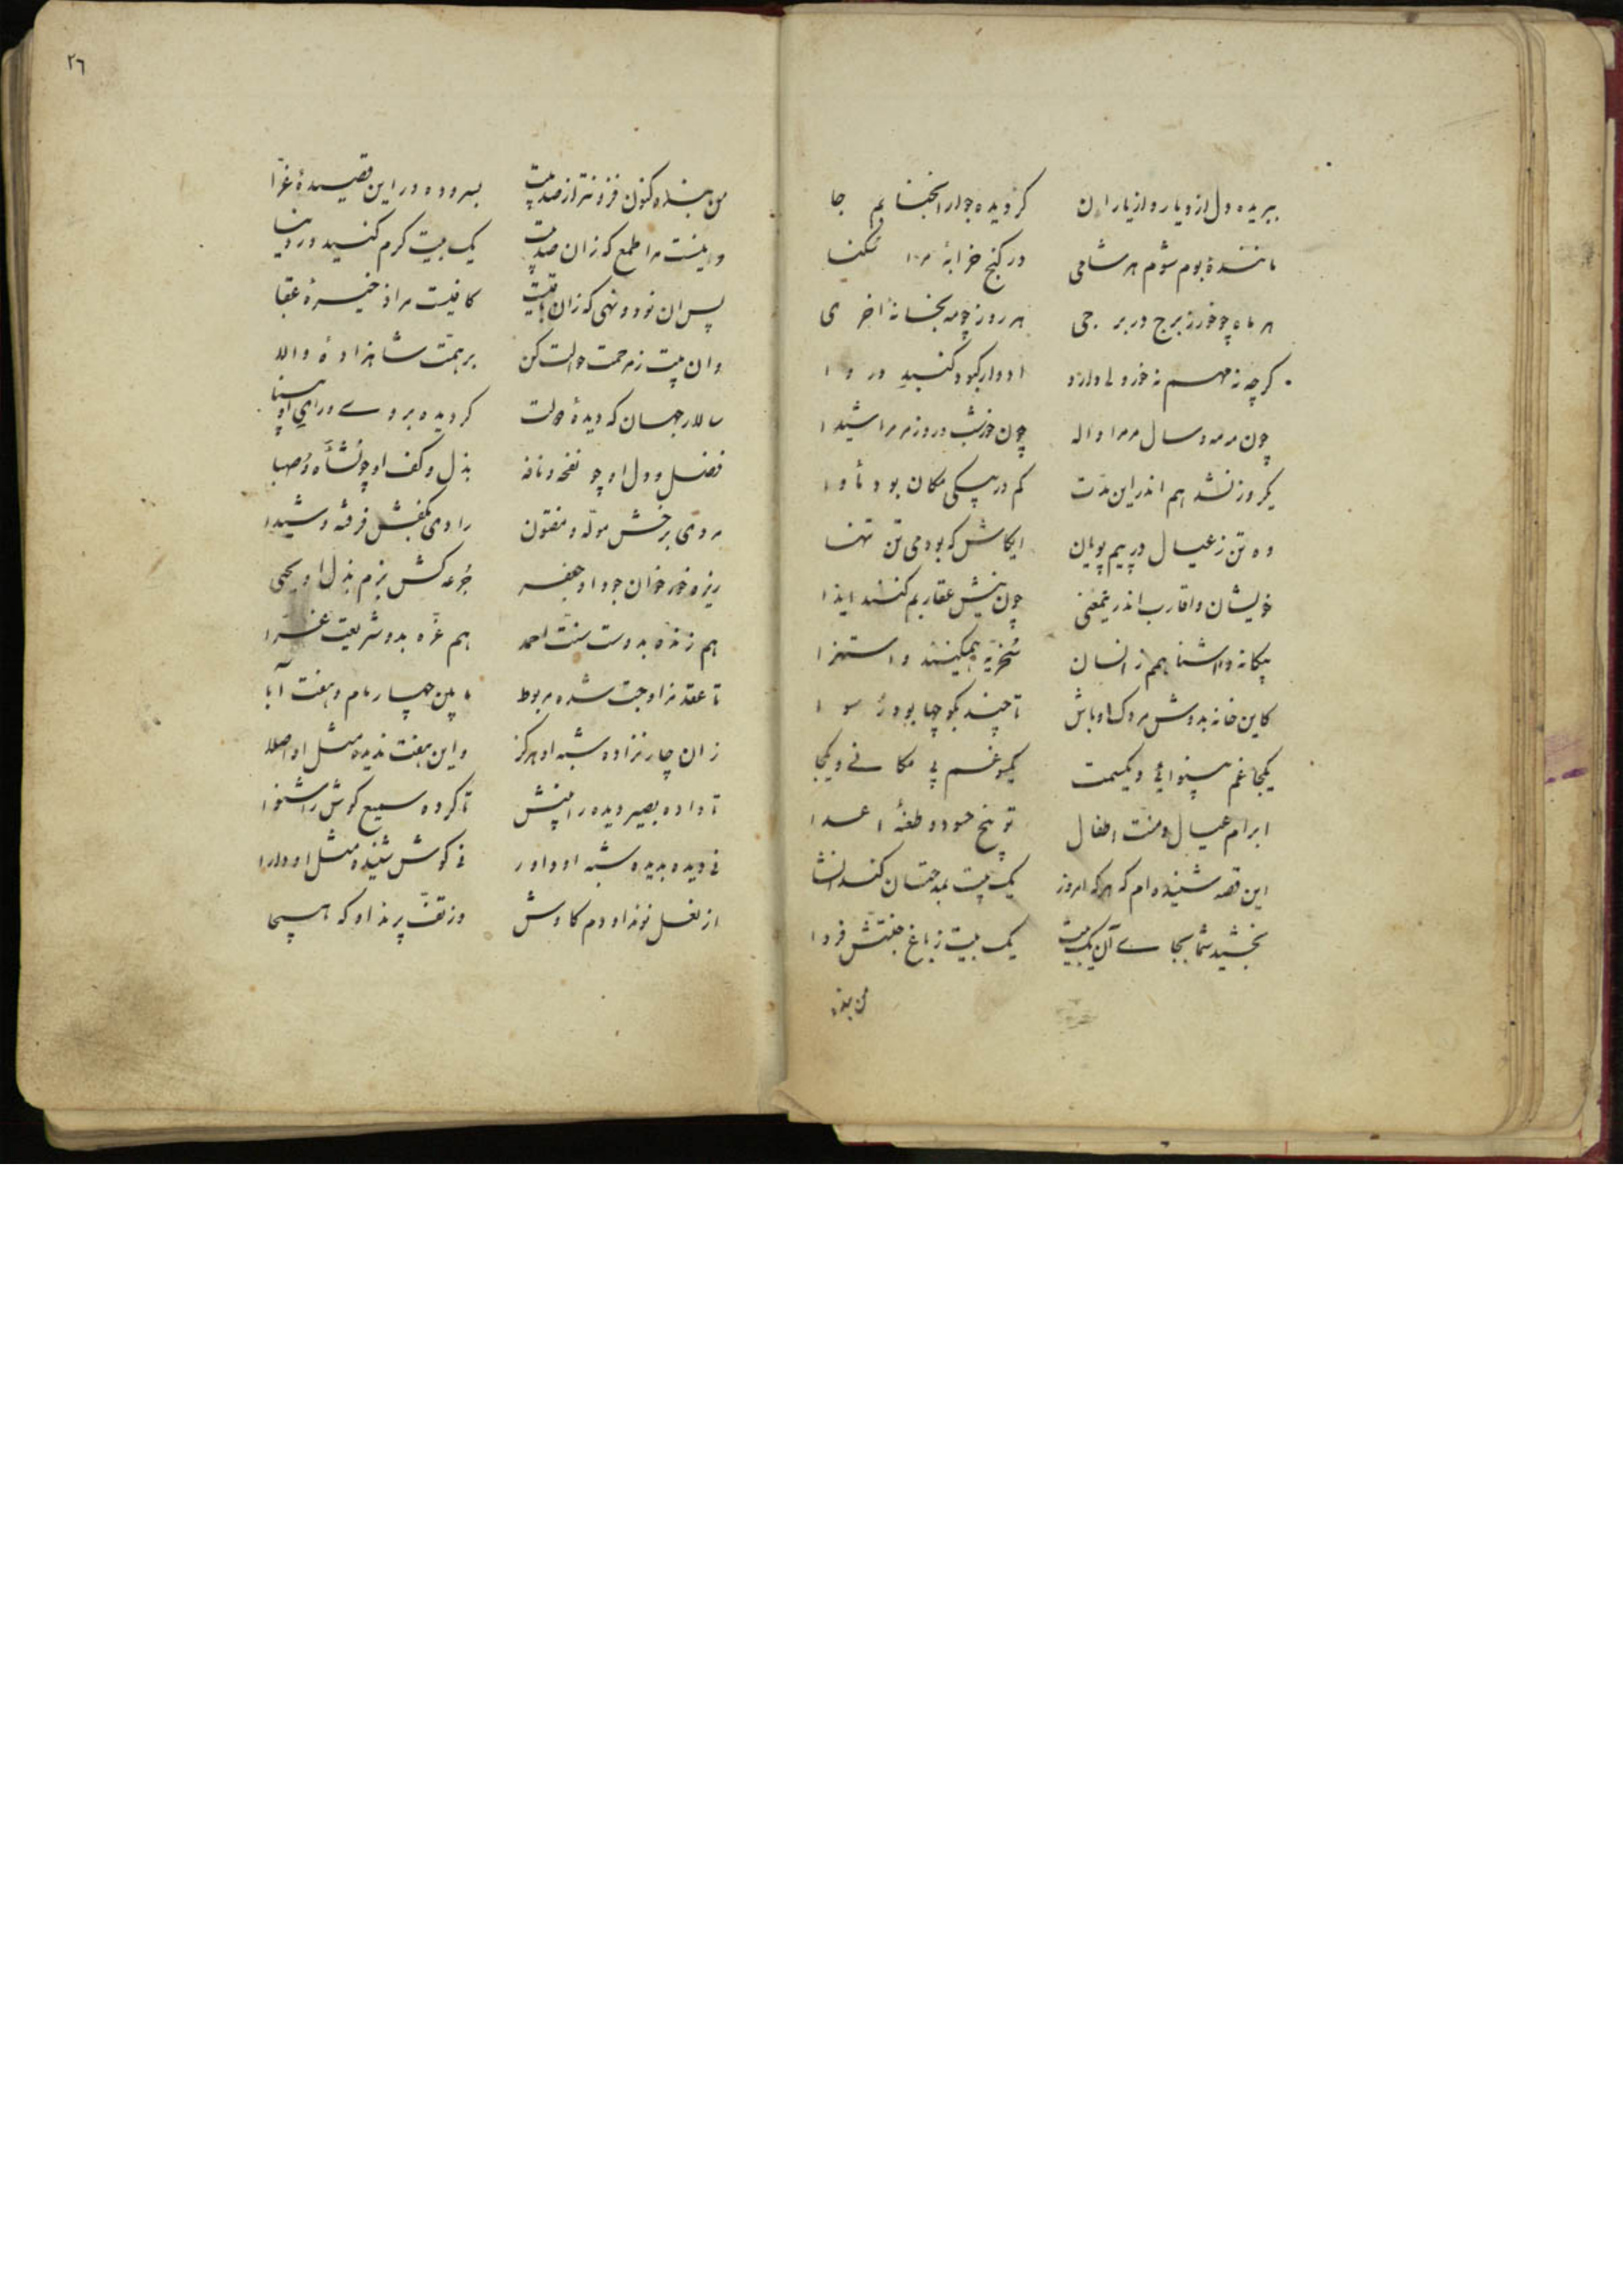 ببریده دل از دیار و از یاران گردیده جوار اجنبیانم جا
ماننده بوم شوم هر شامی در کنج خرابهٔ مرا سکنا
هر ماه چو خور ز برج در برجی هر روز چو مه بخانهٔ اخری
گرچه نه مهم نه خور ولی دارد ادوار کبود گنبد دروا
چون مه و سال مر مرا واله چون خور شب و روز مر مرا شیدا
یکروز نشد هم اندرین مدت کم در یکی مکان بود مأوا
ده تن ز عیال در پیم پویان ایکاش که بودمی تن تنها
خویشان و اقارب اندر یمعنی چون نیش عقاربم کنند ایذا
بیگانه و آشنا هم زانسان سخریه همیکنند و استهزا
کاین خانه بدوش مردک اوباش تا چند بکوچها بود رسوا
یکجا غم بینوائی و یکسمت یکسو غم بی مکانی و یکجا
ابرام عیال و منت اطفال توبیخ حسود و طعنهٔ اعدا
این قصه شنیده‌ام که هر که امروز یک بیت بمدحتان کند انشا
بخشید شما بجای آن یک بیت یک بیت ز باغ جنتش فردا
من بنده
٢٦
من بنده کنون فزونتر از صد بیت بسروده در این قصیدهٔ غرّا
و نیست مرا طمع که زان صد بیت یک بیت کرم کنید در دنیا
پس ان نود و نهی که زان باقیست کافیست مرا ذخیرهٔ عقبا
وان بیت ز مرحمت حوالت کن بر همّت شاهزادهٔ والا
سالار جهان که دیدهٔ دولت گردیده بروی و رای او بینا
فضل و دل او چو نفحه و نافه بذل و کف او چو نشأه و صهبا
مردی برخش موله و مفتون رادی بکفش فرفته و شیدا
ریزه خور خوان جود او جعفر جرعه کش بزم بذل او یحیی
هم زنده بدو ست سنّت احمد هم غرّه بدو شریعت غرّا
تا عقد مزاوجت شده مربوط مابین چهار مام و هفت آبا
زان چار نزاده شبه او هرگز و این هفت ندیده مثل او اصلا
تا داده بصیر دیده را بینش تا کرده سمیع گوش را شنوا
نی دیده بدیده شبه او داور نی گوش شنیده مثل او دارا
از نعل نوند او دم کاوش وز تفّ پرند او که هیجا